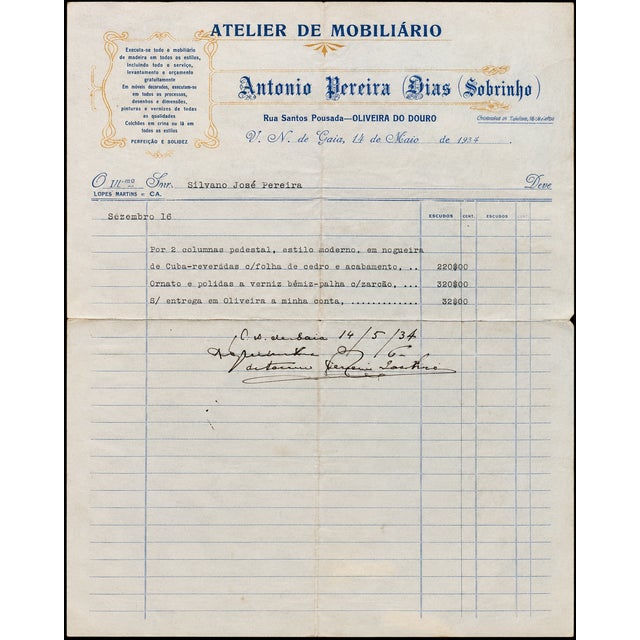 ATELIER DE MOBILIÁRIO
Executa-se todo o mobiliário
de madeira em todos os estilos,
incluindo todo o serviço,
levantamento e orçamento
gratuitamente
Em móveis decorados, executam-se
em todos os processos,
desenhos e dimensões,
pinturas e vernizes de todas
as qualidades
Colchões em crina ou lã em
todos os estilos
PERFEIÇÃO E SOLIDEZ
Antonio Pereira Dias (Sobrinho)
Rua Santos Pousada—OLIVEIRA DO DOURO
V. N. de Gaia, 14 de Maio de 1934
O Ill.mo Snr. Silvano José Pereira Deve
LOPES MARTINS = CA.
Sezembro 16 ESCUDOS CENT. ESCUDOS CENT.
Por 2 columnas pedestal, estilo moderno, em nogueira
de Cuba-reveridas c/folha de cedro e acabamento, .. 220$00
Ornato e polidas a verniz bémiz-palha c/zarcão, ... 320$00
S/ entrega em Oliveira a minha conta, ............. 32$00
de Gaia 14/5/34